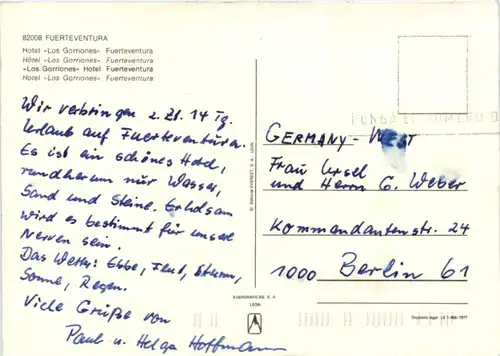 82008 FUERTEVENTURA
Hotel «Los Gorriones» Fuerteventura
Hôtel «Los Gorriones» Fuerteventura
«Los Gorriones» Hotel Fuerteventura
Hotel «Los Gorriones» Fuerteventura
Wir verbringen z. Zt. 14 Tg.
Urlaub auf Fuerteventura.
Es ist ein schönes Hotel,
rundherum nur Wasser,
Sand und Steine. Erholsam
wird es bestimmt für unsere
Nerven sein.
Das Wetter: Ebbe, Flut, Sturm,
Sonne, Regen.
Viele Grüße von
Paul u. Helga Hoffmann
EVERGRAFICAS, S. A.
LEON
GERMANY - WEST
Frau Ursel
und Herrn G. Weber
Kommandantenstr. 24
1000 Berlin 61